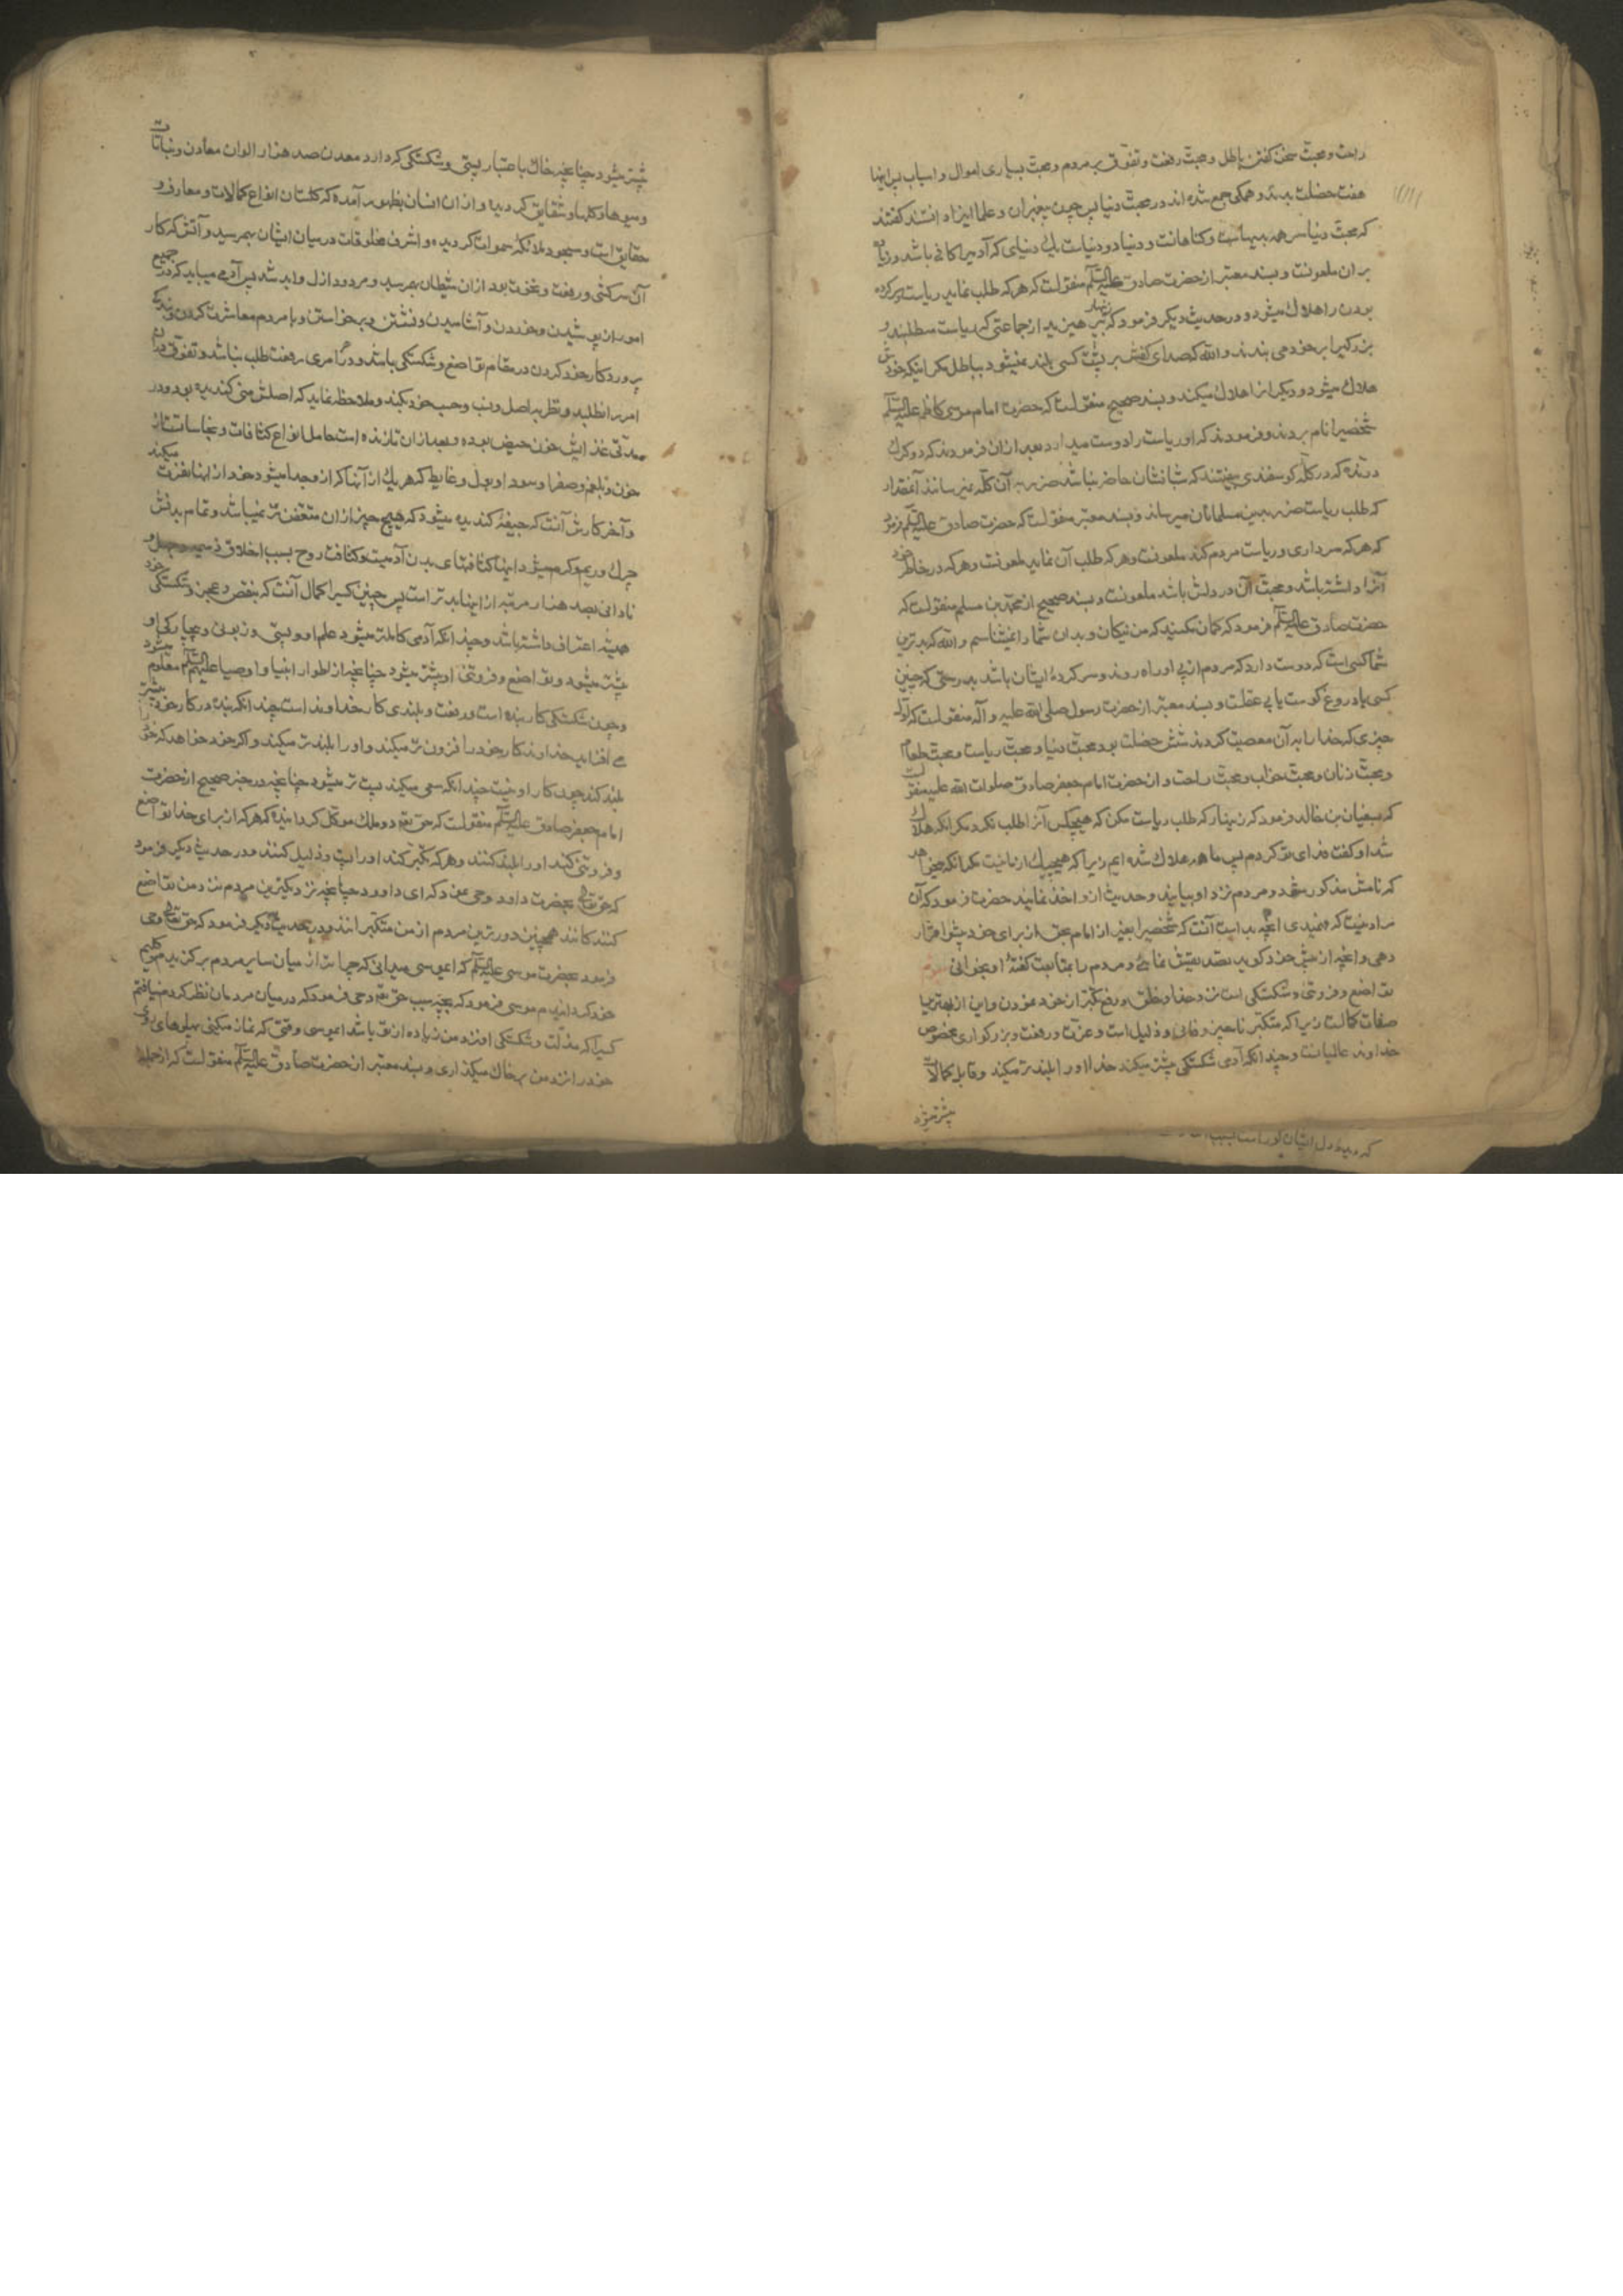 راحت و محبّت سخن گفتن باطل و محبّت رفعت و تفوّق بر مردم و محبّت بسیاری اموال و اسباب پس اینها
هفت خصلت بدند و همگی جمع شده اند در محبّت دنیا پس چون پیغمبران و علما اینرا دانستند گفتند
که محبّت دنیا سر همه بدیهاست و گناهانست و دنیا دو دنیاست یکی دنیای که آدمیرا کافی باشد و زیاده
بر ان ملعونست و بسند معتبر از حضرت صادق علیه السلم منقولست که هر که طلب نماید ریاست و سرکرده
بودن را هلاك میشود و در حدیث دیگر فرمود که زنهار بپرهیزید از جماعتی که ریاست میطلبند و
بزرگیرا بر خود می بندند و الله که صدای کفش بر پشت کسی بلند نمیشود بباطل مگر اینکه خودش
هلاك میشود و دیگرانرا هلاك میکند و بسند صحیح منقولست که حضرت امام موسی کاظم علیه السلم
شخصیرا نام بردند و فرمودند که او ریاست را دوست میدارد بعد ازان فرمودند که دو گرك
درنده که در گلّه گوسفندی بیفتند که شبانشان حاضر نباشد ضرر به آن گلّه نمیرسانند آنمقدار
که طلب ریاست ضرر بدین مسلمانان میرساند و بسند معتبر منقولست که حضرت صادق علیه السلم فرمود
که هر که سرداری و ریاست مردم کند ملعونست و هر که طلب آن نماید ملعونست و هر که در خاطر خود
آنرا داشته باشد و محبّت آن در دلش باشد ملعونست و بسند صحیح از محمّد بن مسلم منقولست که
حضرت صادق علیه السلم فرمود که گمان مکنید که من نیکان و بدان شما را نمیشناسم و الله که بدترین
شما کسی است که دوست دارد که مردم از پی او راه روند و سرکردهٔ ایشان باشد بدرستی که چنین
کسی یا دروغ گوست یا بی عقلست و بسند معتبر از حضرت رسول صلی الله علیه و آله منقولست که اوّل
چیزی که خدا را به آن معصیت کردند شش خصلت بود محبّت دنیا و محبّت ریاست و محبّت طعام
و محبّت زنان و محبّت خواب و محبّت راحت و از حضرت امام جعفر صادق صلوات الله علیه منقولست
که بسفیان بن خالد فرمود که زینهار که طلب ریاست مکن که هیچکس آنرا طلب نکرد مگر انکه هلاك
شد او گفت فدای تو گردم پس ما همه هلاك شده ایم زیرا که هیچیك از ما نیست مگر انکه میخواهد
که نامش مذکور شود و مردم نزد او بیایند و حدیث ازو اخذ نمایند حضرت فرمود که آن
مراد نیست که فهمیدی انچه بد است آنست که شخصیرا بغیر از امام بحق از برای خود پیشوا قرار
دهی و انچه از پیش خود گوید تصدیقش نمائی و مردم را بمتابعت گفتهٔ او بخوانی
تواضع و فروتنی و شکستگی است نزد خدا و خلق و رفع تکبّر از خود نمودن و این از بهترین
صفات کمالست زیرا که متکبّر ناچیز و فانی و ذلیل است و عزّت و رفعت و بزرگواری مخصوص
خداوند عالمیانست و چندانکه آدمی شکستگی بیشتر میکند خدا او را بلندتر میکند و قابل کمالات
بیشتر میشود
بیشتر میشود چنانچه خاك باعتبار پستی و شکستگی که دارد معدن صد هزار الوان معادن و نباتات
و میوها و گلها و شقایق گردیده و ازان انسان بظهور آمده که گلستان انواع کمالات و معارف و
حقایق است و مسجود ملائکهٔ سموات گردیده و اشرف مخلوقات درمیان ایشان بهم رسید و آتش که کار
آن سرکشی و رفعت و نخوت بود ازان شیطان بهم رسید و مردود ازل و ابد شد پس آدمی میباید که در جمیع
امور از پوشیدن و خوردن و آشامیدن و نشستن و برخواستن و با مردم معاشرت کردن و بندگی
پروردکار خود کردن در مقام تواضع و شکستگی باشد و در امری رفعت طلب نباشد و تفوّق در ان
امر را نطلبد و نظر به اصل و نسب و حسب خود بکند و ملاحظه نماید که اصلش منی گندیده بود و در
مدّتی غذایش خون حیض بوده و بعد ازان تا زنده است حامل انواع کثافات و نجاسات است از
خون و بلغم و صفرا و سودا و بول و غایط که هریك از آنها که ازو جدا میشود خود از انها نفرت میکند
و آخر کارش آنست که جیفهٔ گندیده میشود که هیچ چیز ازان متعفن تر نمیباشد و تمام بدنش
چرك و ریم و کرم میشود اینها کثافتهای بدن آدمیست و کثافت روح بسبب اخلاق ذمیمه و جهل و
نادانی بصد هزار مرتبه از اینها بدتر است پس چنین کسیرا کمال آنست که بنقص و عجز و شکستگی خود
همیشه اعتراف داشته باشد و چندانکه آدمی کاملتر میشود علم او و پستی و زبونی و بیچارگی او
بیشتر میشود و تواضع و فروتنی او بیشتر میشود چنانچه از اطوار انبیا و اوصیا علیهم السلم معلوم میشود
و چون شکستگی کار بنده است و رفعت و بلندی کار خداوند است چندانکه بنده در کار خود بیشتر
می افزاید خداوند کار خود را فزون تر میکند و او را بلندتر میکند و اگر خود خواهد که خود را
بلند کند چون کار او نیست چندانکه سعی میکند پست تر میشود چنانچه در خبر صحیح از حضرت
امام جعفر صادق علیه السلم منقولست که حق تعه دو ملك موکل گردانیده که هر که از برای خدا تواضع
و فروتنی کند او را بلند کنند و هر که تکبّر کند او را پست و ذلیل کنند و در حدیث دیگر فرمود
که حق تعالی بحضرت داود وحی نمود که ای داود چنانچه نزدیکترین مردم نزد من تواضع
کنندگانند همچنین دورترین مردم از من متکبّرانند و در حدیث دیگر فرمود که حق تعالی وحی
فرمود بحضرت موسی علیه السلم که ایموسی میدانی که چرا ترا از میان سایر مردم برگزیدم و کلیم
خود گردانیدم موسی فرمود که بچه سبب حق تعه وحی فرمود که درمیان مردمان نظر کردم نیافتم
کسیرا که مذلّت و شکستگی او نزد من زیاده از تو باشد ایموسی وقتی که نماز میکنی پهلوهای روی
خود را نزد من بر خاك میگذاری و بسند معتبر از حضرت صادق علیه السلم منقولست که از جمله